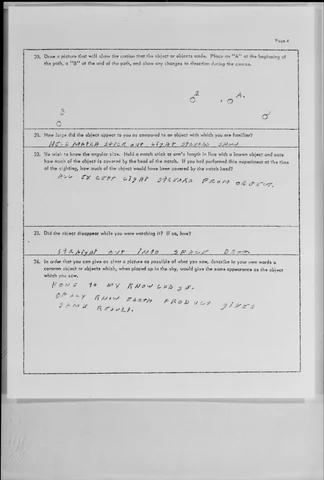 Page 4
20. Draw a picture that will show the motion that the object or objects made. Place an "A" at the beginning of
the path, a "B" at the end of the path, and show any changes in direction during the course.
2
A.
3
21. How large did the object appear to you as compared to an object with which you are familiar?
MATCH STICK OUT LIGHT
22. We wish to know the angular size. Hold a match stick at arm's length in line with a known object and note
how much of the object is covered by the head of the match. If you had performed this experiment at the time
of the sighting, how much of the object would have been covered by the match head?
ALL EXCEPT LIGHT FROM OBJECT.
23. Did the object disappear while you were watching it? If so, how?
STRAIGHT OUT INTO SPACE
24. In order that you can give as clear a picture as possible of what you saw, describe in your own words a
common object or objects which, when placed up in the sky, would give the same appearance as the object
which you saw.
NONE TO MY KNOWLEDGE.
KNOW EARTH PRODUCT GIVES
SAME RESULT.